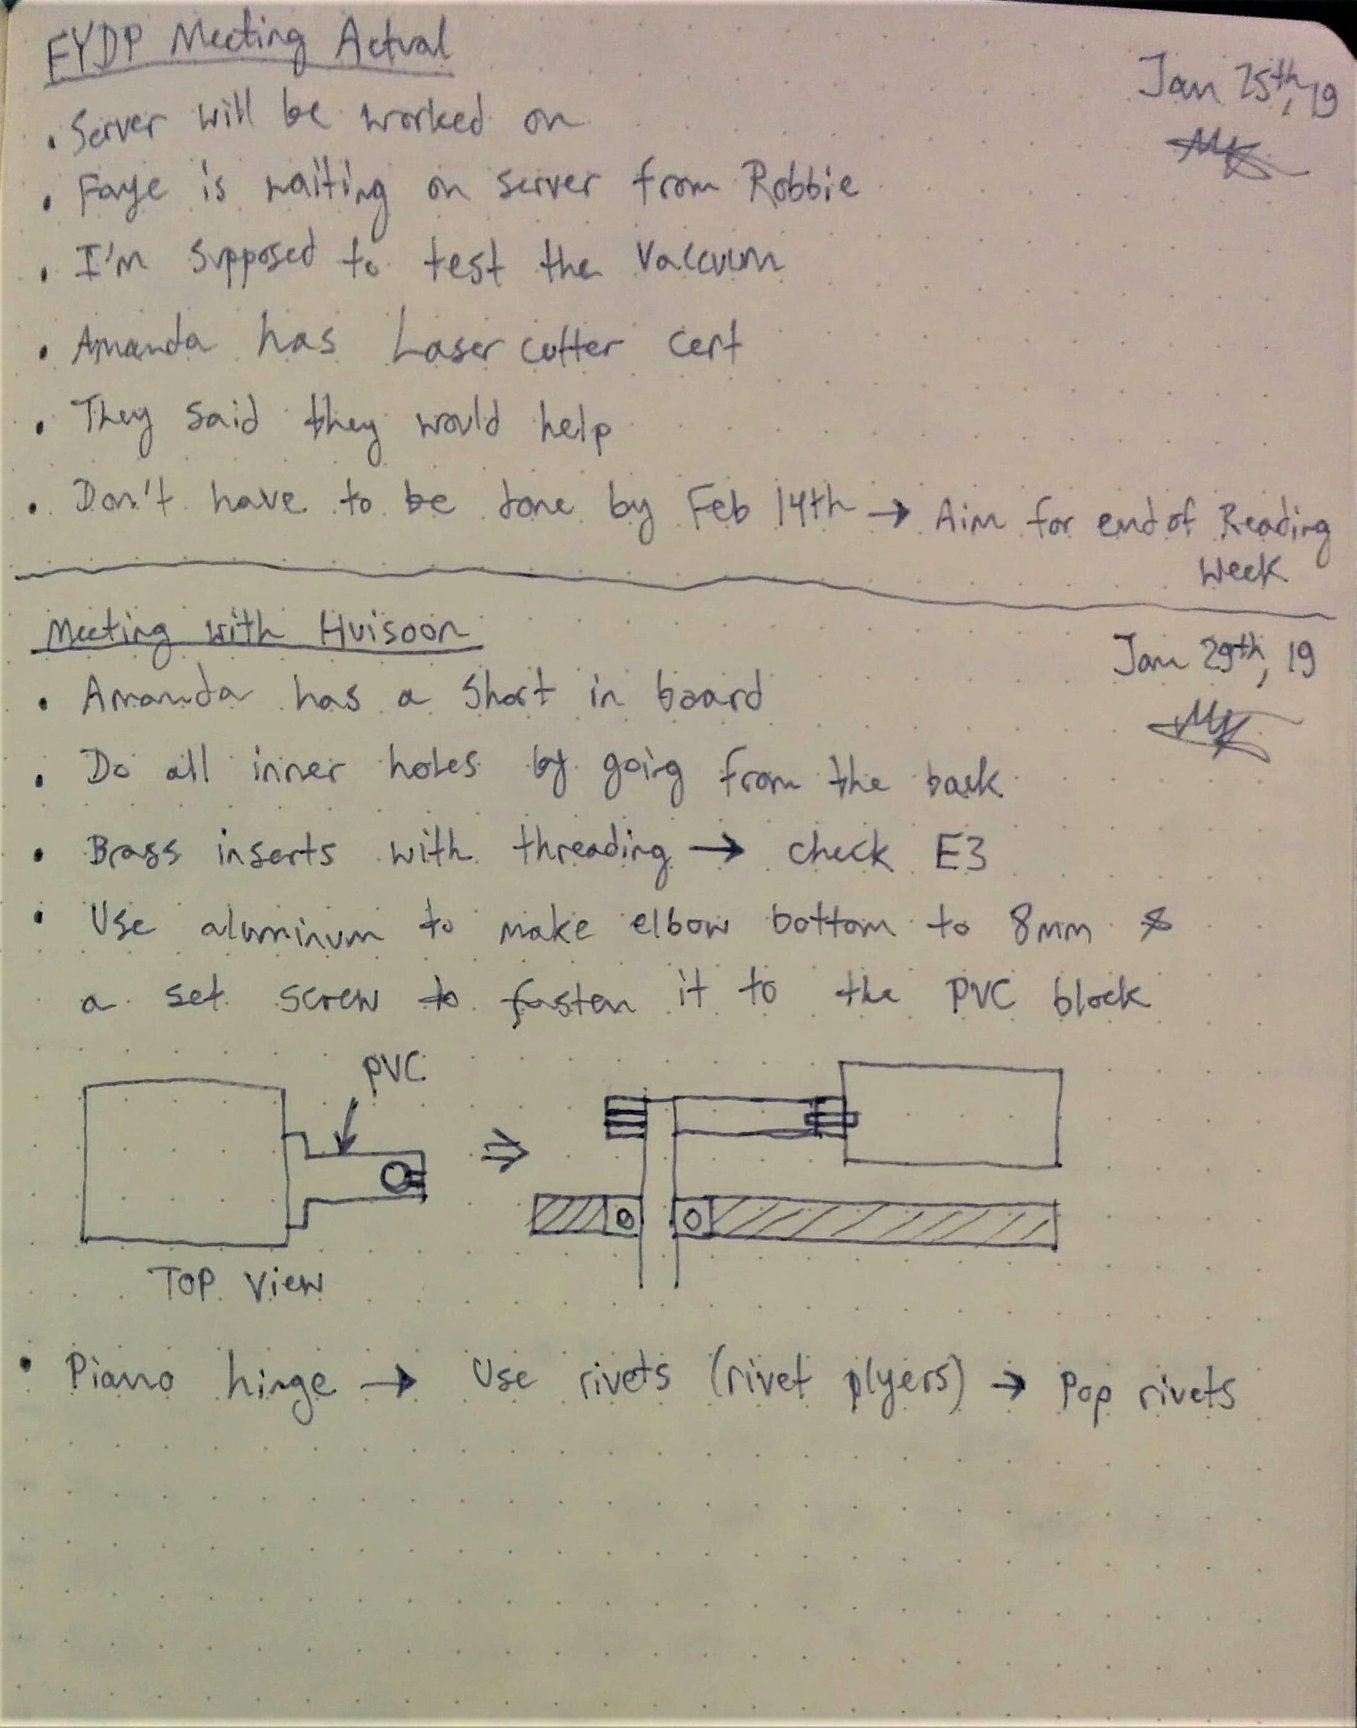 FYDP Meeting Actual
Jan 25th, 19
• Server will be worked on
• Faye is waiting on server from Robbie
• I'm supposed to test the Vaccum
• Amanda has Laser cutter cert
• They said they would help
• Don't have to be done by Feb 14th → Aim for end of Reading
Week
Meeting with Huisoon
Jan 29th, 19
• Amanda has a short in board
• Do all inner holes by going from the back
• Brass inserts with threading → check E3
• Use aluminum to make elbow bottom to 8mm &
a set screw to fasten it to the PVC block
PVC
⇒
TOP View
• Piano hinge → Use rivets (rivet plyers) → Pop rivets